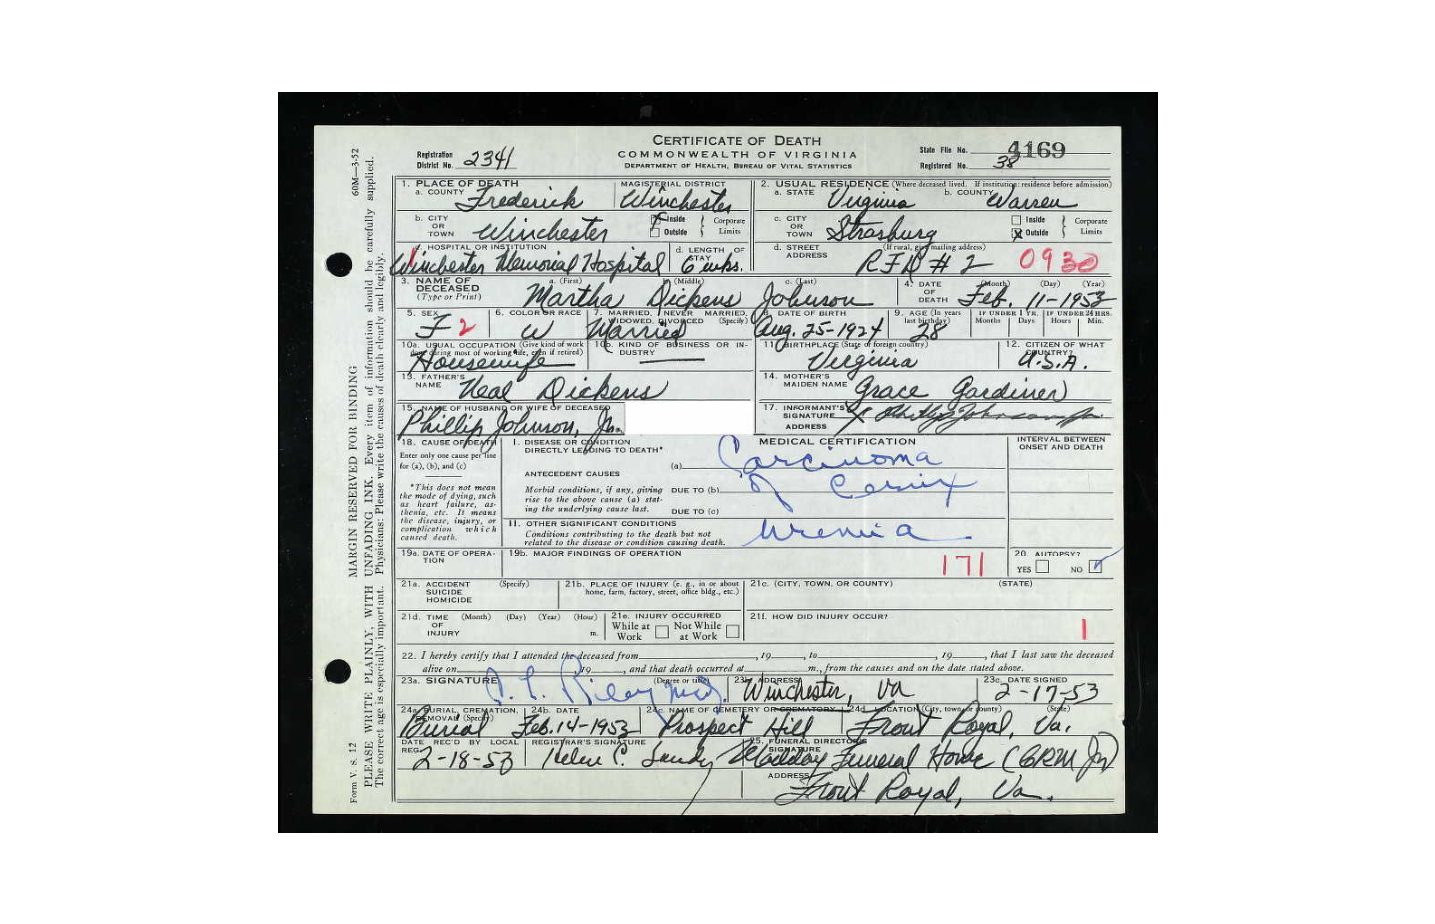 CERTIFICATE OF DEATH
COMMONWEALTH OF VIRGINIA
DEPARTMENT OF HEALTH, BUREAU OF VITAL STATISTICS
Registration District No. 2341
State File No. 4169
Registered No. 38
60M—3-52
MARGIN RESERVED FOR BINDING
PLEASE WRITE PLAINLY, WITH UNFADING INK. Every item of information should be carefully supplied.
The correct age is especially important. Physicians: Please write the causes of death clearly and legibly.
Form V. S. 12
1. PLACE OF DEATH
a. COUNTY Frederick
MAGISTERIAL DISTRICT Winchester
2. USUAL RESIDENCE (Where deceased lived. If institution: residence before admission)
a. STATE Virginia b. COUNTY Warren
b. CITY OR TOWN Winchester
Inside Outside Corporate Limits
c. CITY OR TOWN Strasburg
Inside X Outside Corporate Limits
d. HOSPITAL OR INSTITUTION Winchester Memorial Hospital
d. LENGTH OF STAY 6 wks.
d. STREET ADDRESS (If rural, give mailing address) RFD # 2 0930
3. NAME OF DECEASED (Type or Print)
a. (First) Martha b. (Middle) Dickens c. (Last) Johnson
4. DATE OF DEATH (Month) (Day) (Year) Feb. 11-1953
5. SEX F 2
6. COLOR OR RACE W
7. MARRIED, NEVER MARRIED, WIDOWED, DIVORCED (Specify) Married
8. DATE OF BIRTH Aug. 25-1924
9. AGE (In years last birthday) 28
IF UNDER 1 YR. Months Days
IF UNDER 24 HRS. Hours Min.
10a. USUAL OCCUPATION (Give kind of work done during most of working life, even if retired) Housewife
10b. KIND OF BUSINESS OR INDUSTRY
11. BIRTHPLACE (State or foreign country) Virginia
12. CITIZEN OF WHAT COUNTRY? U.S.A.
13. FATHER'S NAME Neal Dickens
14. MOTHER'S MAIDEN NAME Grace Gardiner
15. NAME OF HUSBAND OR WIFE OF DECEASED Phillip Johnson, Jr.
17. INFORMANT'S SIGNATURE X Phillip Johnson Jr
ADDRESS
18. CAUSE OF DEATH
Enter only one cause per line for (a), (b), and (c)
*This does not mean the mode of dying, such as heart failure, asthenia, etc. It means the disease, injury, or complication which caused death.
MEDICAL CERTIFICATION
INTERVAL BETWEEN ONSET AND DEATH
I. DISEASE OR CONDITION DIRECTLY LEADING TO DEATH* (a) Carcinoma
ANTECEDENT CAUSES
Morbid conditions, if any, giving rise to the above cause (a) stating the underlying cause last.
DUE TO (b) of Cervix
DUE TO (c)
II. OTHER SIGNIFICANT CONDITIONS
Conditions contributing to the death but not related to the disease or condition causing death.
Uremia
19a. DATE OF OPERATION
19b. MAJOR FINDINGS OF OPERATION
171
20. AUTOPSY?
YES NO
21a. ACCIDENT SUICIDE HOMICIDE (Specify)
21b. PLACE OF INJURY (e. g., in or about home, farm, factory, street, office bldg., etc.)
21c. (CITY, TOWN, OR COUNTY) (STATE)
21d. TIME OF INJURY (Month) (Day) (Year) (Hour) m.
21e. INJURY OCCURRED While at Work Not While at Work
21f. HOW DID INJURY OCCUR?
1
22. I hereby certify that I attended the deceased from , 19 , to , 19 , that I last saw the deceased
alive on , 19 , and that death occurred at m., from the causes and on the date stated above.
23a. SIGNATURE (Degree or title) Riley M.D.
23b. ADDRESS Winchester, Va
23c. DATE SIGNED 2-17-53
24a. BURIAL, CREMATION, REMOVAL (Specify) Burial
24b. DATE Feb. 14-1953
24c. NAME OF CEMETERY OR CREMATORY Prospect Hill
24d. LOCATION (City, town, or county) (State) Front Royal, Va.
DATE REC'D BY LOCAL REG. 2-18-53
REGISTRAR'S SIGNATURE Helen C.
25. FUNERAL DIRECTOR'S SIGNATURE Maddox Funeral Home (GRM Jr)
ADDRESS Front Royal, Va.